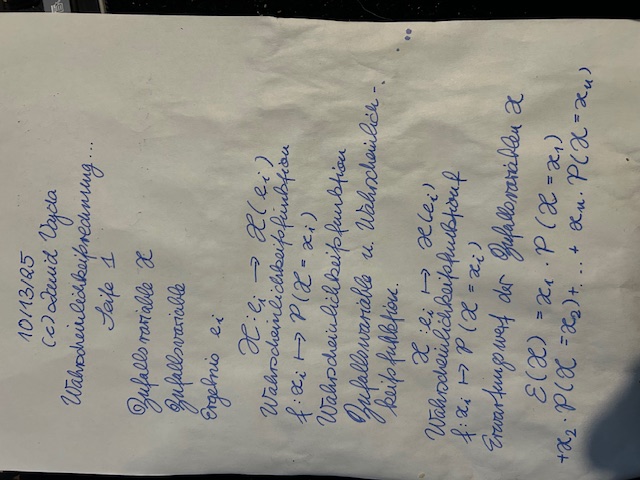 10/13/25
(c) David Vajda
Wahrscheinlichkeitsrechnung...
Seite 1
Zufallsvariable X
Zufallsvariable
Ergebnis ei
X: ei → X(ei)
Wahrscheinlichkeitsfunktion
f: xi ↦ P(X = xi)
Wahrscheinlichkeitsfunktion
Zufallsvariable u. Wahrscheinlich-
keitsfunktion.
X: ei ↦ X(ei)
Wahrscheinlichkeitsfunktion f
f: xi ↦ P(X = xi)
Erwartungswert der Zufallsvariablen X
E(X) = x1 · P(X = x1)
+ x2 · P(X = x2) + ... + xn · P(X = xn)